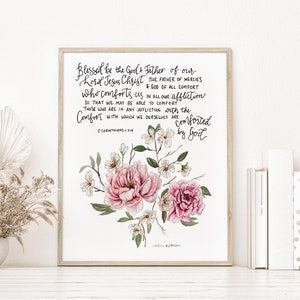 Blessed be the God & Father of our
Lord Jesus Christ THE FATHER OF MERCIES
& GOD OF ALL COMFORT
who comforts us IN ALL OUR affliction
SO THAT WE MAY BE ABLE TO COMFORT
THOSE WHO ARE IN ANY AFFLICTION with the
Comfort WITH WHICH WE OURSELVES ARE comforted
by God
2 CORINTHIANS 1:3-4